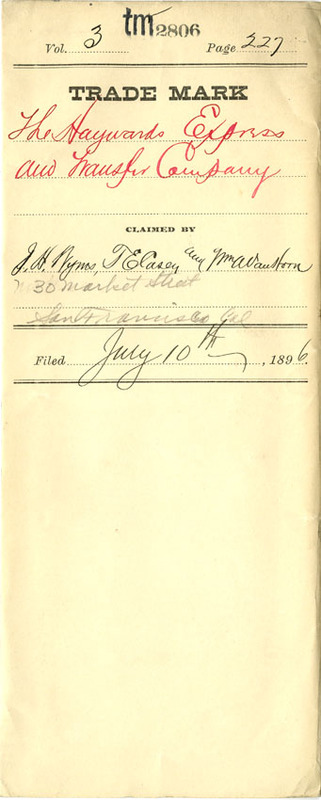 tm 2806
Vol. 3 Page 227
TRADE MARK
The Haywards Express
and Transfer Company
CLAIMED BY
J. H. T E Casey and Wm A Van Horn
30 market street
San Francisco Cal
Filed July 10th, 1896.